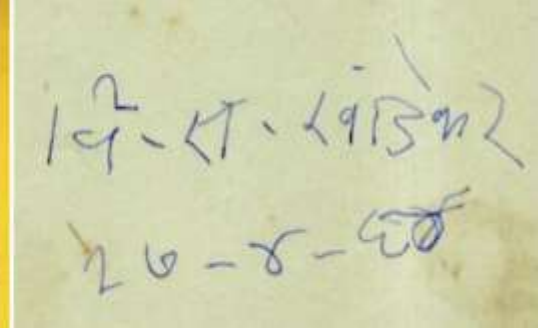 वि. स. खांडेकर
२७-४-६४